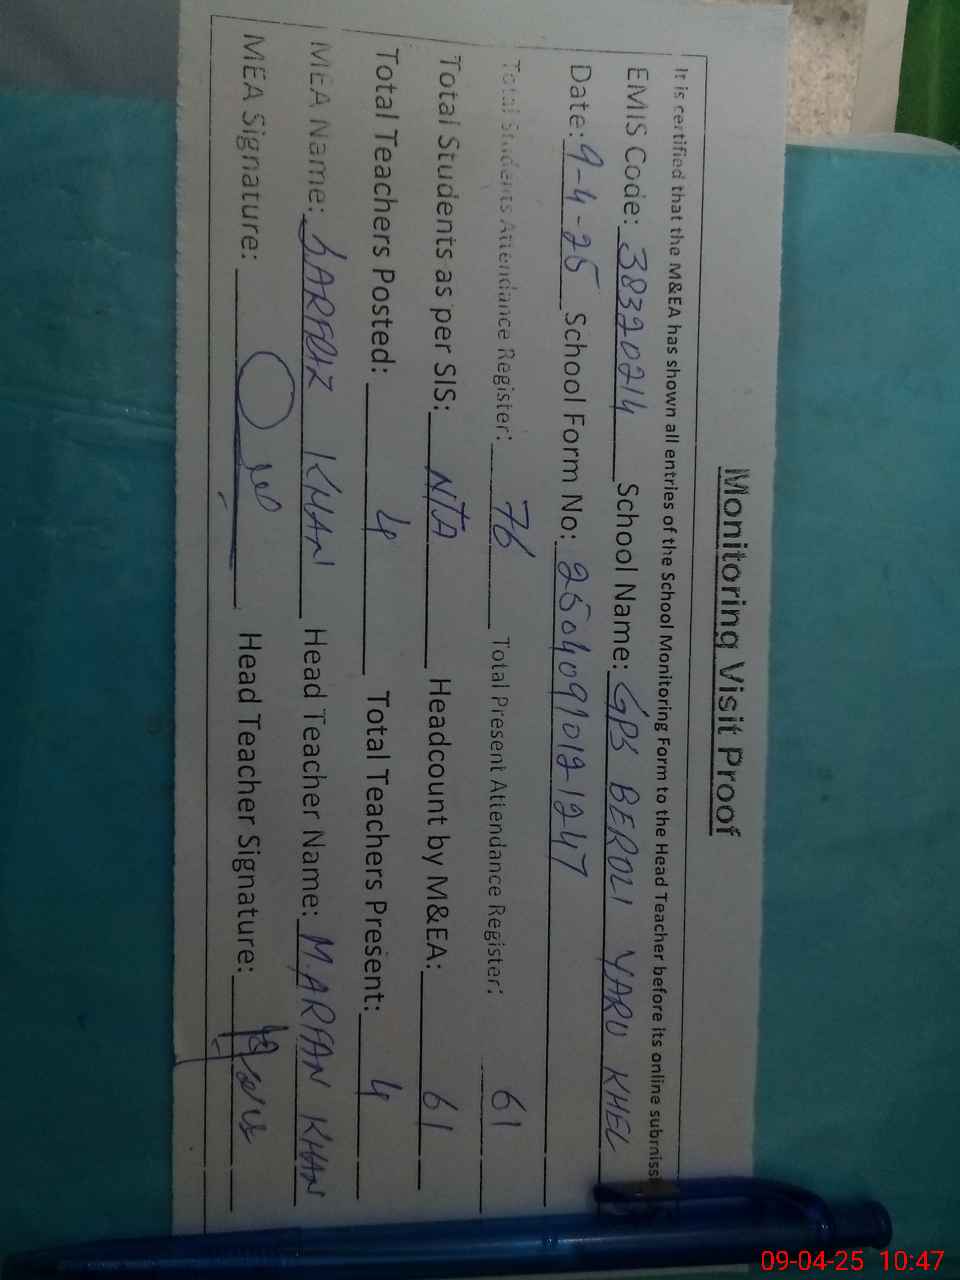 Monitoring Visit Proof
It is certified that the M&EA has shown all entries of the School Monitoring Form to the Head Teacher before its online submissi
EMIS Code: 38320214 School Name: GPS BEROZI YARU KHEL
Date: 9-4-25 School Form No: 25040910121247
Total Students Attendance Register: 76 Total Present Attendance Register: 61
Total Students as per SIS: N/A Headcount by M&EA: 61
Total Teachers Posted: 4 Total Teachers Present: 4
MEA Name: SARFRAZ KHAN Head Teacher Name: M.ARFAN KHAN
MEA Signature: Head Teacher Signature:
09-04-25 10:47